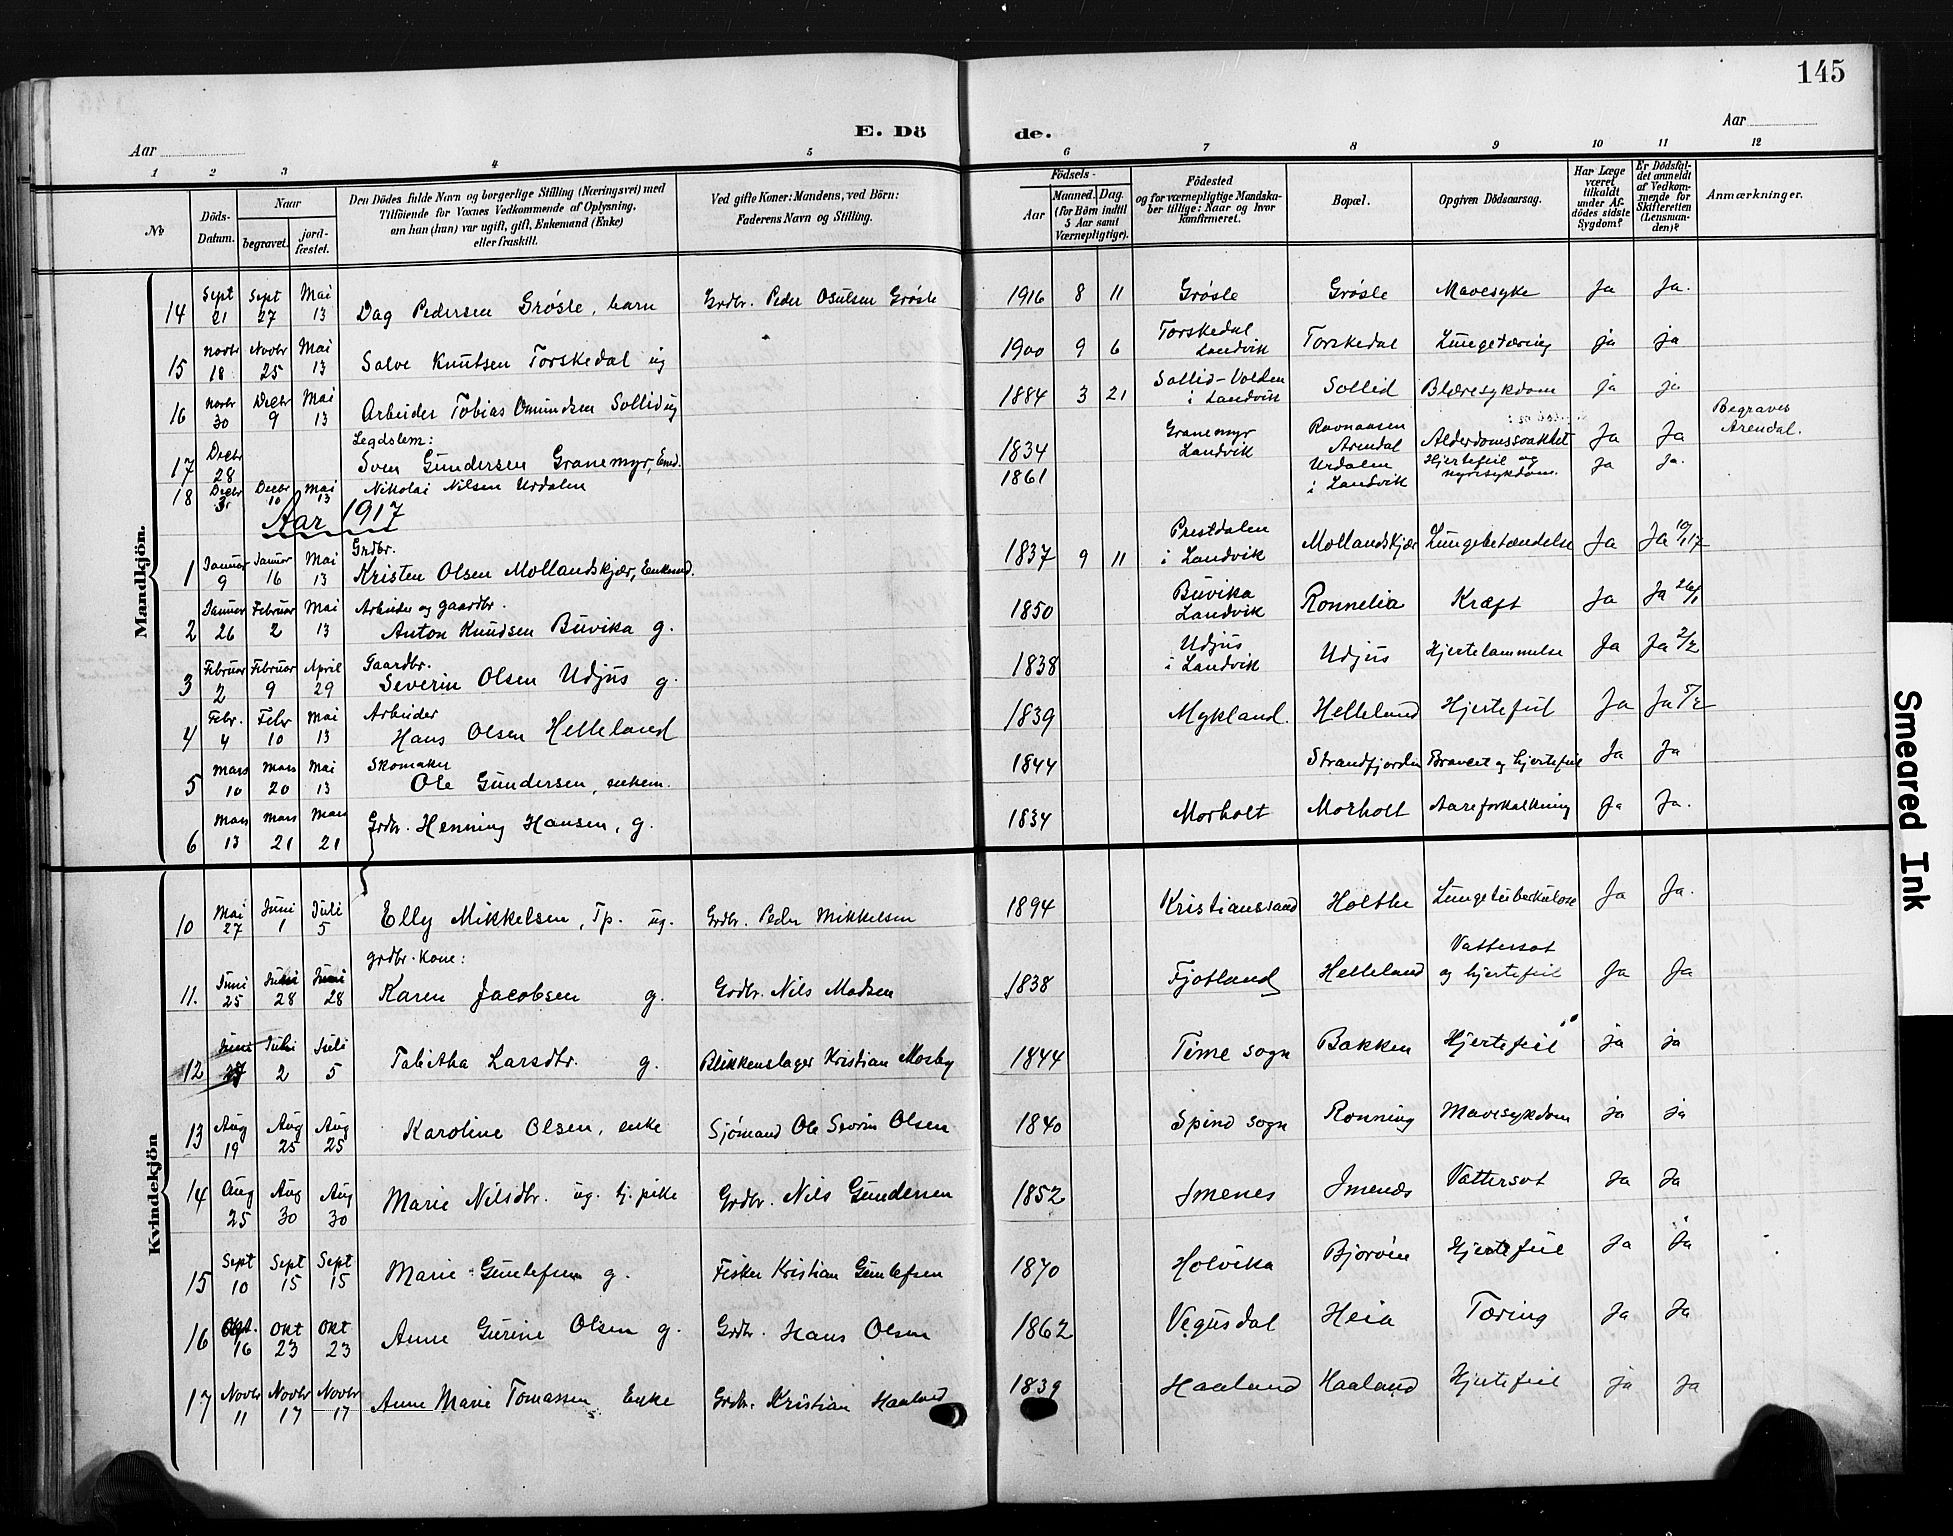 145
E. Dö de.
Aar Aar
1 2 3 4 5 6 7 8 9 10 11 12
No
Döds-Datum.
Naar
begravet.
jord-fæstet.
Den Dödes fulde Navn og borgerlige Stilling (Næringsvei) med Tilföiende for Voxnes Vedkommende af Oplysning, om han (hun) var ugift, gift, Enkemand (Enke) eller fraskilt.
Ved gifte Koner: Mandens, ved Börn: Faderens Navn og Stilling.
Födsels-
Aar
Maaned. Dag.
(for Börn indtil 5 Aar samt Værnepligtige).
Födested og for værnepligtige Mandskaber tillige: Naar og hvor konfirmeret.
Bopæl.
Opgiven Dödsaarsag.
Har Læge været tilkaldt under Afdödes sidste Sygdom?
Er Dödsfaldet anmeldt af Vedkommende for Skifteretten (Lensmanden)?
Anmærkninger.
Mandkjön.
14 Sept 21 Sept 27 Mai 13 Dag Pedersen Grøsle, barn Grdbr. Peder Osulsen Grøsle 1916 8 11 Grøsle Grøsle Mavesyke Ja Ja.
15 Novbr 18 Novbr 25 Mai 13 Salve Knutsen Torskedal ug 1900 9 6 Torskedal Landvik Torskedal Lungetæring ja ja
16 Novbr 30 Decbr 9 Mai 13 Arbeider Tobias Omundsen Sollid ug 1884 3 21 Sollid-Volden i Landvik Sollid Blæresykdom ja ja
17 Decbr 28 Legdslem: Sven Gundersen Granemyr, End. 1834 Granemyr Landvik Ravnaasen Arendal Alderdomssvakhet Ja Ja Begraves Arendal.
18 Decbr 3 Decbr 10 Mai 13 Nikolai Nilsen Urdalen 1861 Urdalen i Landvik Hjertefeil og nyresykdom. Ja Ja.
Aar 1917
1 Januar 9 Januar 16 Mai 13 Grdbr. Kristen Olsen Mollandskjær, Enkemd. 1837 9 11 Prestdalen i Landvik Mollandskjær Lungebetændelse Ja Ja 10/1 17
2 Januar 26 Februar 2 Mai 13 Arbeider og gaardbr. Anton Knudsen Buvika g. 1850 Buvika Landvik Ronnelia Kræft Ja Ja 26/1
3 Februar 2 Februar 9 April 29 Gaardbr. Severin Olsen Udjus g. 1838 Udjus i Landvik Udjus Hjertelammelse Ja Ja 2/2
4 Febr. 4 Febr 10 Mai 13 Arbeider Hans Olsen Helleland 1839 Mykland Helleland Hjertefeil Ja Ja 5/2
5 Mars 10 Mars 20 Mai 13 Skomaker Ole Gundersen, enkem. 1844 Strandfjorden og hjertefeil Ja Ja
6 Mars 13 Mars 21 Mars 21 Grdbr. Henning Hansen, g. 1834 Morholt Morholt Aareforkalkning Ja Ja.
Kvindekjön
10 Mai 27 Juni 1 Juli 5 Elly Mikkelsen, Tp. ug. Grdbr. Peder Mikkelsen 1894 Kristianssand Holthe Lungetuberkulose Ja Ja.
11. Juni 25 Juni 28 Juni 28 grdbr. kone: Karen Jacobsen g. Grdbr. Nils Madsen 1838 Fjotland Helleland Vattersot og hjertefeil Ja Ja
12 Juni 27 Juli 2 Juli 5 Tabitha Larsdtr. g. Blikkenslager Kristian Mosby 1844 Time sogn Bakken Hjertefeil ja ja
13 Aug 19 Aug 25 Aug 25 Karoline Olsen, enke Sjømand Ole Severin Olsen 1840 Spind sogn Ronning Mavesykdom ja ja
14 Aug 25 Aug 30 Aug 30 Marie Nilsdtr. ug. tj. pike Grdbr. Nils Gundersen 1852 Imenes Imenes Vattersot Ja Ja
15 Sept 10 Sept 15 Sept 15 Marie Gunlefsen g. Fisker Kristian Gunlefsen 1870 Holvika Bjorvin Hjertefeil Ja Ja
16 Okt. 16 Okt 23 Okt 23 Anne Gurine Olsen g. Grdbr. Hans Olsen 1862 Vegusdal Heia Tæring Ja Ja
17 Novbr 11 Novbr 17 Novbr 17 Anne Marie Tomassen Enke Grdbr. Kristian Haaland 1839 Haaland Haaland Hjertefeil ja Ja
Smeared Ink